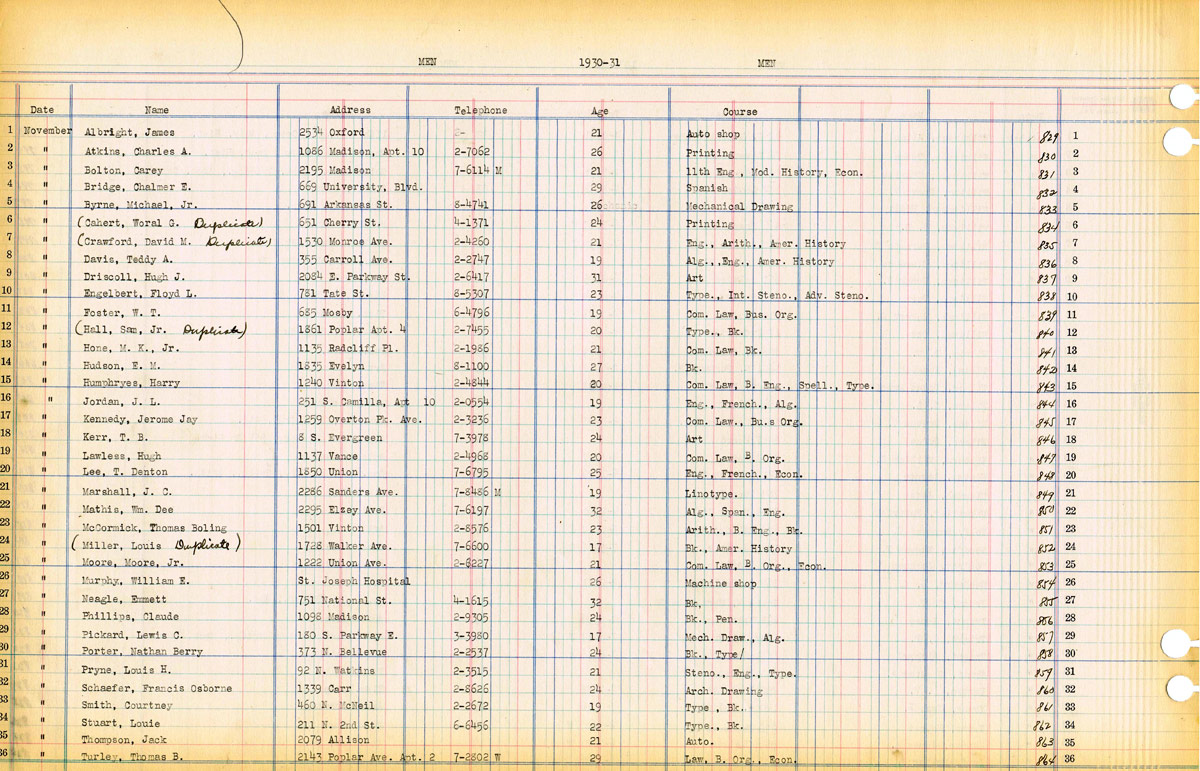 MEN 1930-31 MEN
Date Name Address Telephone Age Course
1 November Albright, James 2534 Oxford 2- 21 Auto shop 829 1
2 " Atkins, Charles A. 1086 Madison, Apt. 10 2-7062 26 Printing 830 2
3 " Bolton, Carey 2195 Madison 7-6114 M 21 11th Eng., Mod. History, Econ. 831 3
4 " Bridge, Chalmer E. 669 University, Blvd. 29 Spanish 832 4
5 " Byrne, Michael, Jr. 691 Arkansas St. 8-4741 26 Mechanical Drawing 833 5
6 " (Cahert, Woral G. Duplicate) 651 Cherry St. 4-1371 24 Printing 834 6
7 " (Crawford, David M. Duplicate) 1530 Monroe Ave. 2-4260 21 Eng., Arith., Amer. History 835 7
8 " Davis, Teddy A. 355 Carroll Ave. 2-2747 19 Alg.,,Eng., Amer. History 836 8
9 " Driscoll, Hugh J. 2084 E. Parkway St. 2-6417 31 Art 837 9
10 " Engelbert, Floyd L. 781 Tate St. 8-5307 23 Type., Int. Steno., Adv. Steno. 838 10
11 " Foster, W. T. 685 Mosby 6-4796 19 Com. Law, Bus. Org. 839 11
12 " (Hall, Sam, Jr. Duplicate) 1861 Poplar Apt. 4 2-7455 20 Type., Bk. 840 12
13 " Hone, M. K., Jr. 1135 Radcliff Pl. 2-1986 21 Com. Law, Bk. 841 13
14 " Hudson, E. M. 1835 Evelyn 8-1100 27 Bk. 842 14
15 " Humphryes, Harry 1240 Vinton 2-4844 20 Com. Law, B. Eng., Spell., Type. 843 15
16 " Jordan, J. L. 251 S. Camilla, Apt 10 2-0554 19 Eng., French., Alg. 844 16
17 " Kennedy, Jerome Jay 1259 Overton Pk. Ave. 2-3236 23 Com. Law., Bu.s Org. 845 17
18 " Kerr, T. B. 8 S. Evergreen 7-3978 24 Art 846 18
19 " Lawless, Hugh 1137 Vance 2-4968 20 Com. Law, B. Org. 847 19
20 " Lee, T. Denton 1850 Union 7-6795 25 Eng., French., Econ. 848 20
21 " Marshall, J. C. 2286 Sanders Ave. 7-8486 M 19 Linotype. 849 21
22 " Mathis, Wm. Dee 2295 Elzey Ave. 7-6197 32 Alg., Span., Eng. 850 22
23 " McCormick, Thomas Boling 1501 Vinton 2-8576 23 Arith., B. Eng., Bk. 851 23
24 " (Miller, Louis Duplicate) 1728 Walker Ave. 7-6600 17 Bk., Amer. History 852 24
25 " Moore, Moore, Jr. 1222 Union Ave. 2-6227 21 Com. Law, B. Org., Econ. 853 25
26 " Murphy, William E. St. Joseph Hospital 26 Machine shop 854 26
27 " Neagle, Emmett 751 National St. 4-1615 32 Bk. 855 27
28 " Phillips, Claude 1098 Madison 2-9305 24 Bk., Pen. 856 28
29 " Pickard, Lewis C. 180 S. Parkway E. 3-3980 17 Mech. Draw., Alg. 857 29
30 " Porter, Nathan Berry 373 N. Bellevue 2-2537 24 Bk., Type/ 858 30
31 " Pryne, Louis H. 92 N. Watkins 2-3515 21 Steno., Eng., Type. 859 31
32 " Schaefer, Francis Osborne 1339 Carr 2-8626 24 Arch. Drawing 860 32
33 " Smith, Courtney 460 N. McNeil 2-2672 19 Type., Bk. 861 33
34 " Stuart, Louie 211 N. 2nd St. 6-6456 22 Type., Bk. 862 34
35 " Thompson, Jack 2079 Allison 21 Auto. 863 35
36 " Turley, Thomas B. 2143 Poplar Ave. Apt. 2 7-2802 W 29 Law, B. Org., Econ. 864 36